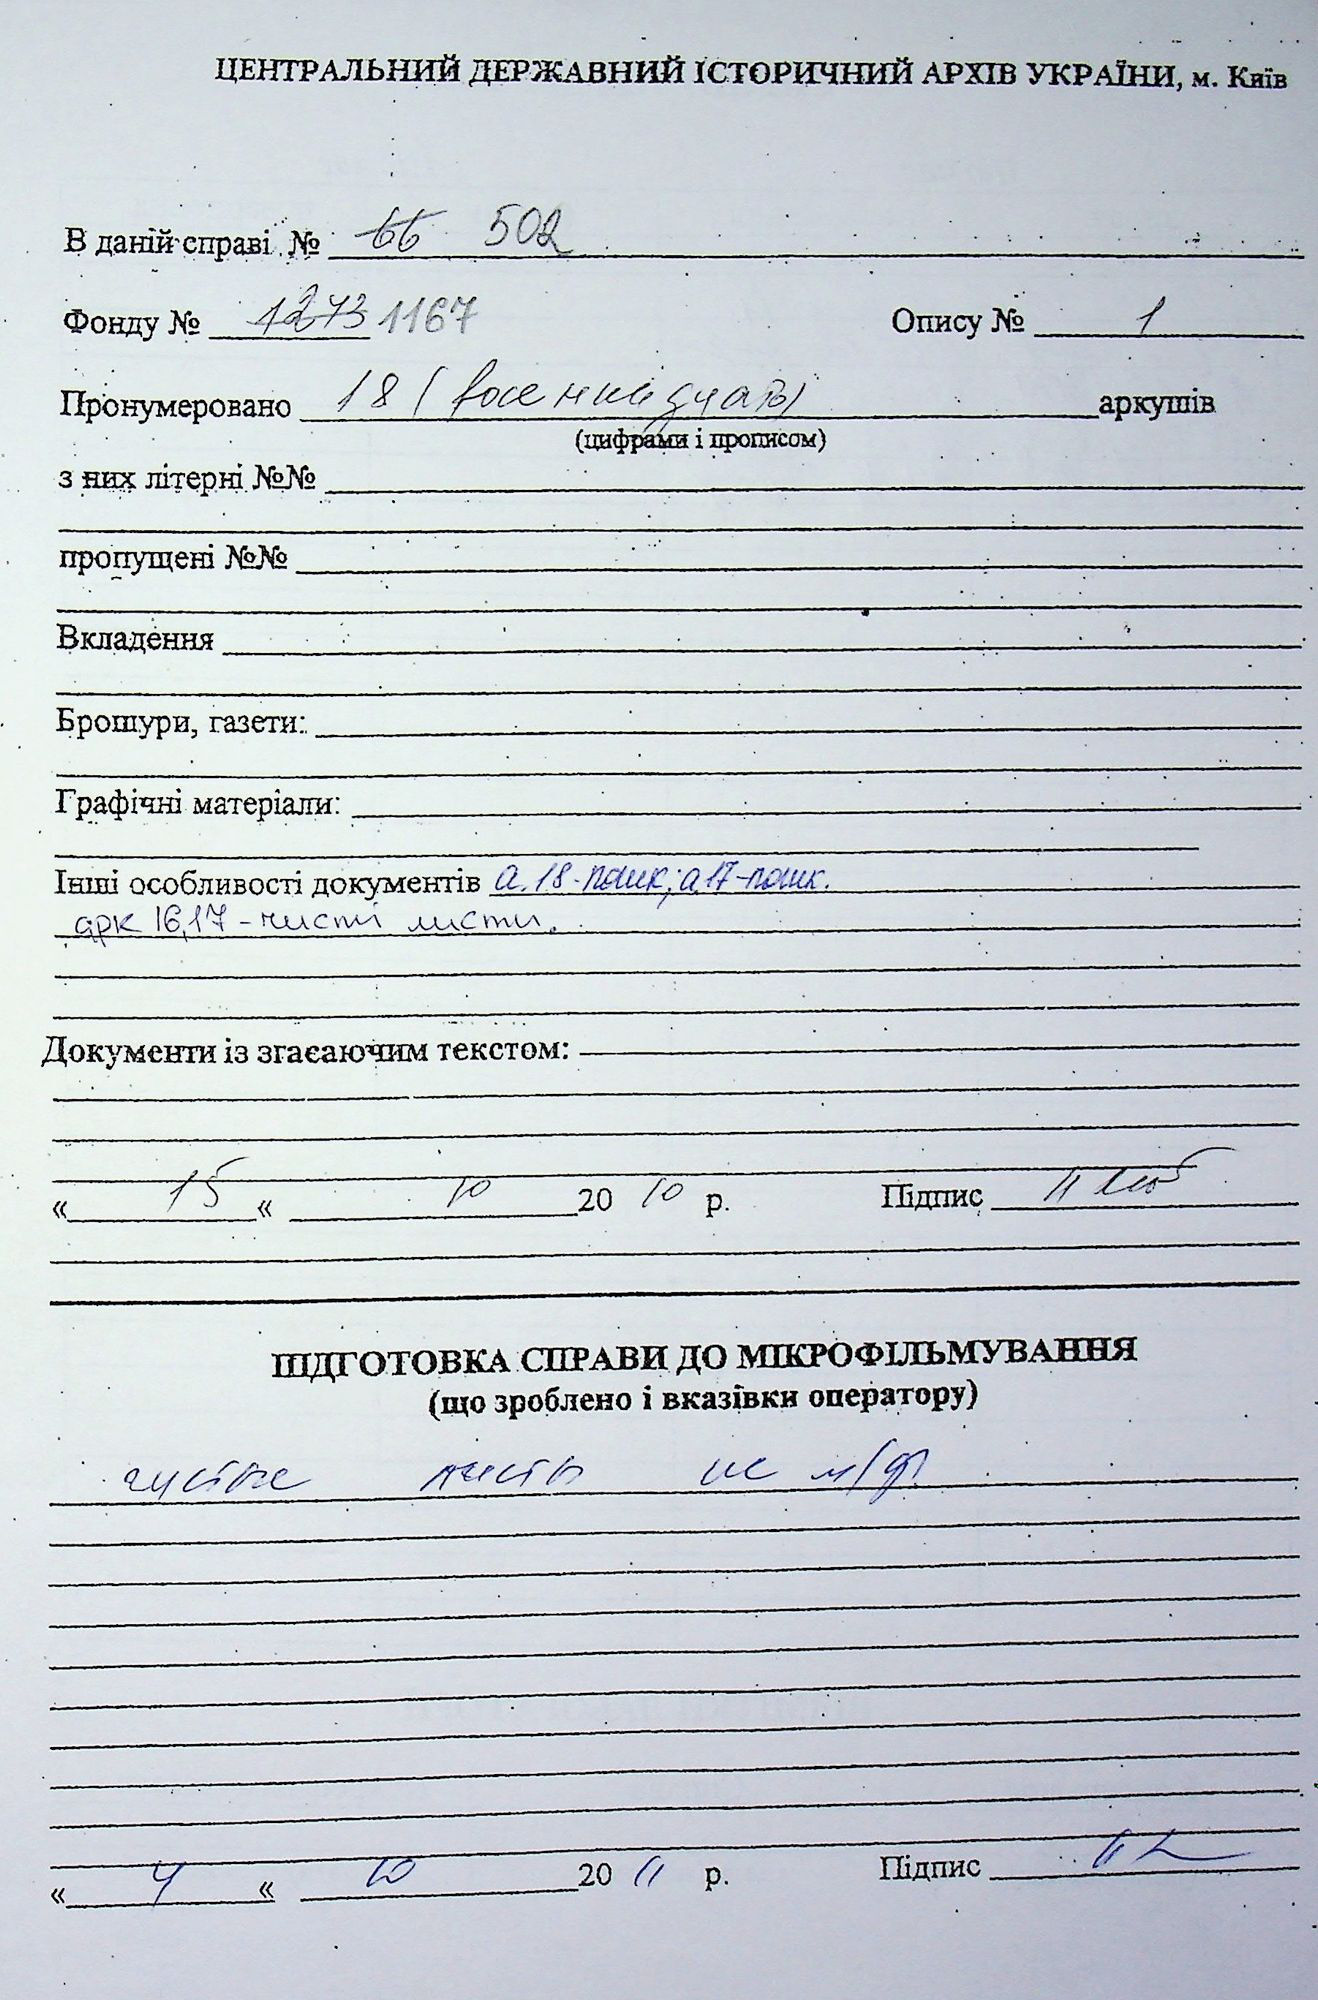 ЦЕНТРАЛЬНИЙ ДЕРЖАВНИЙ ІСТОРИЧНИЙ АРХІВ УКРАЇНИ, м. Київ
В даній справі № 66 502
Фонду № 1273 1167 Опису № 1
Пронумеровано 18 ( аркушів
(цифрами і прописом)
з них літерні №№
пропущені №№
Вкладення
Брошури, газети:
Графічні матеріали:
Інші особливості документів а.18-пошк; а17-пошк.
арк 16,17 - чисті листи.
Документи із згасаючим текстом:
« 15 « 10 20 10 р. Підпис
ПІДГОТОВКА СПРАВИ ДО МІКРОФІЛЬМУВАННЯ
(що зроблено і вказівки оператору)
чистые листы не м/ф
« 4 « 10 20 11 р. Підпис